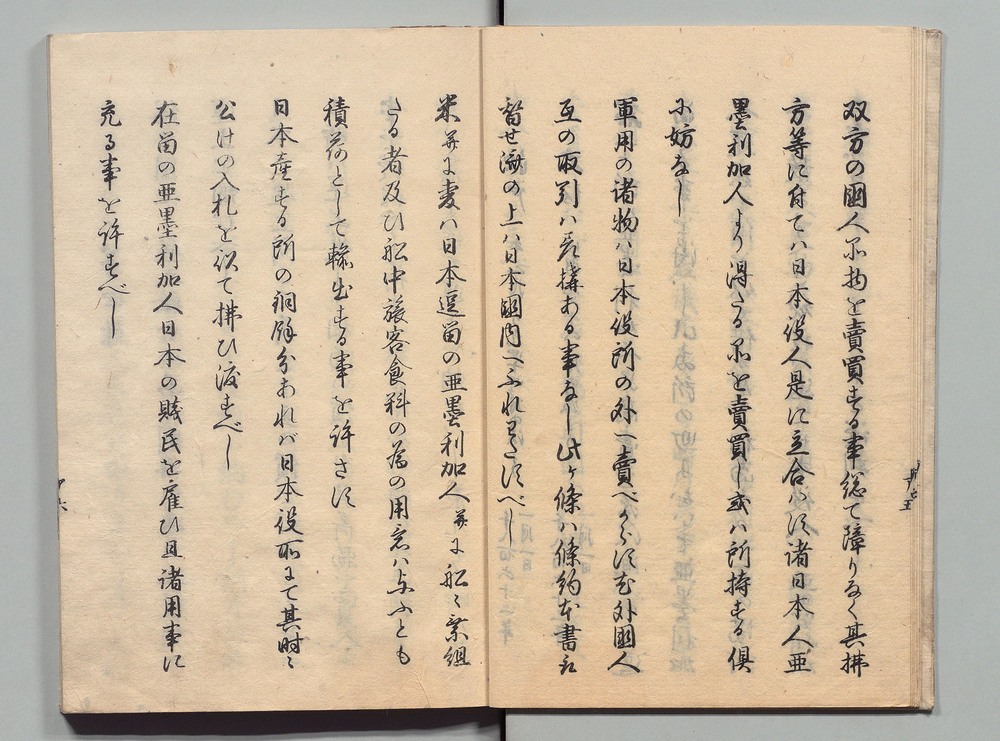 双方の國人品物を賣買する事総て障りなく其拂
方等に付てハ日本役人是に立合ハす諸日本人亜
墨利加人より得たる品を賣買し或ハ所持する倶
に妨なし
軍用の諸物ハ日本役所の外へ賣べからす尤外國人
互の取引ハ差構ある事なし此ヶ條ハ條約本書取
替せ濟の上ハ日本國内へふれわたすべし
米并に麦ハ日本逗留の亜墨利加人并に船々乗組
たる者及ひ船中旅客食料の為の用意ハ与ふとも
積荷として輸出する事を許さす
日本産する所の銅餘分あれバ日本役所にて其時々
公けの入札を以て拂ひ渡すべし
在留の亜墨利加人日本の賤民を雇ひ且諸用事に
充る事を許すべし